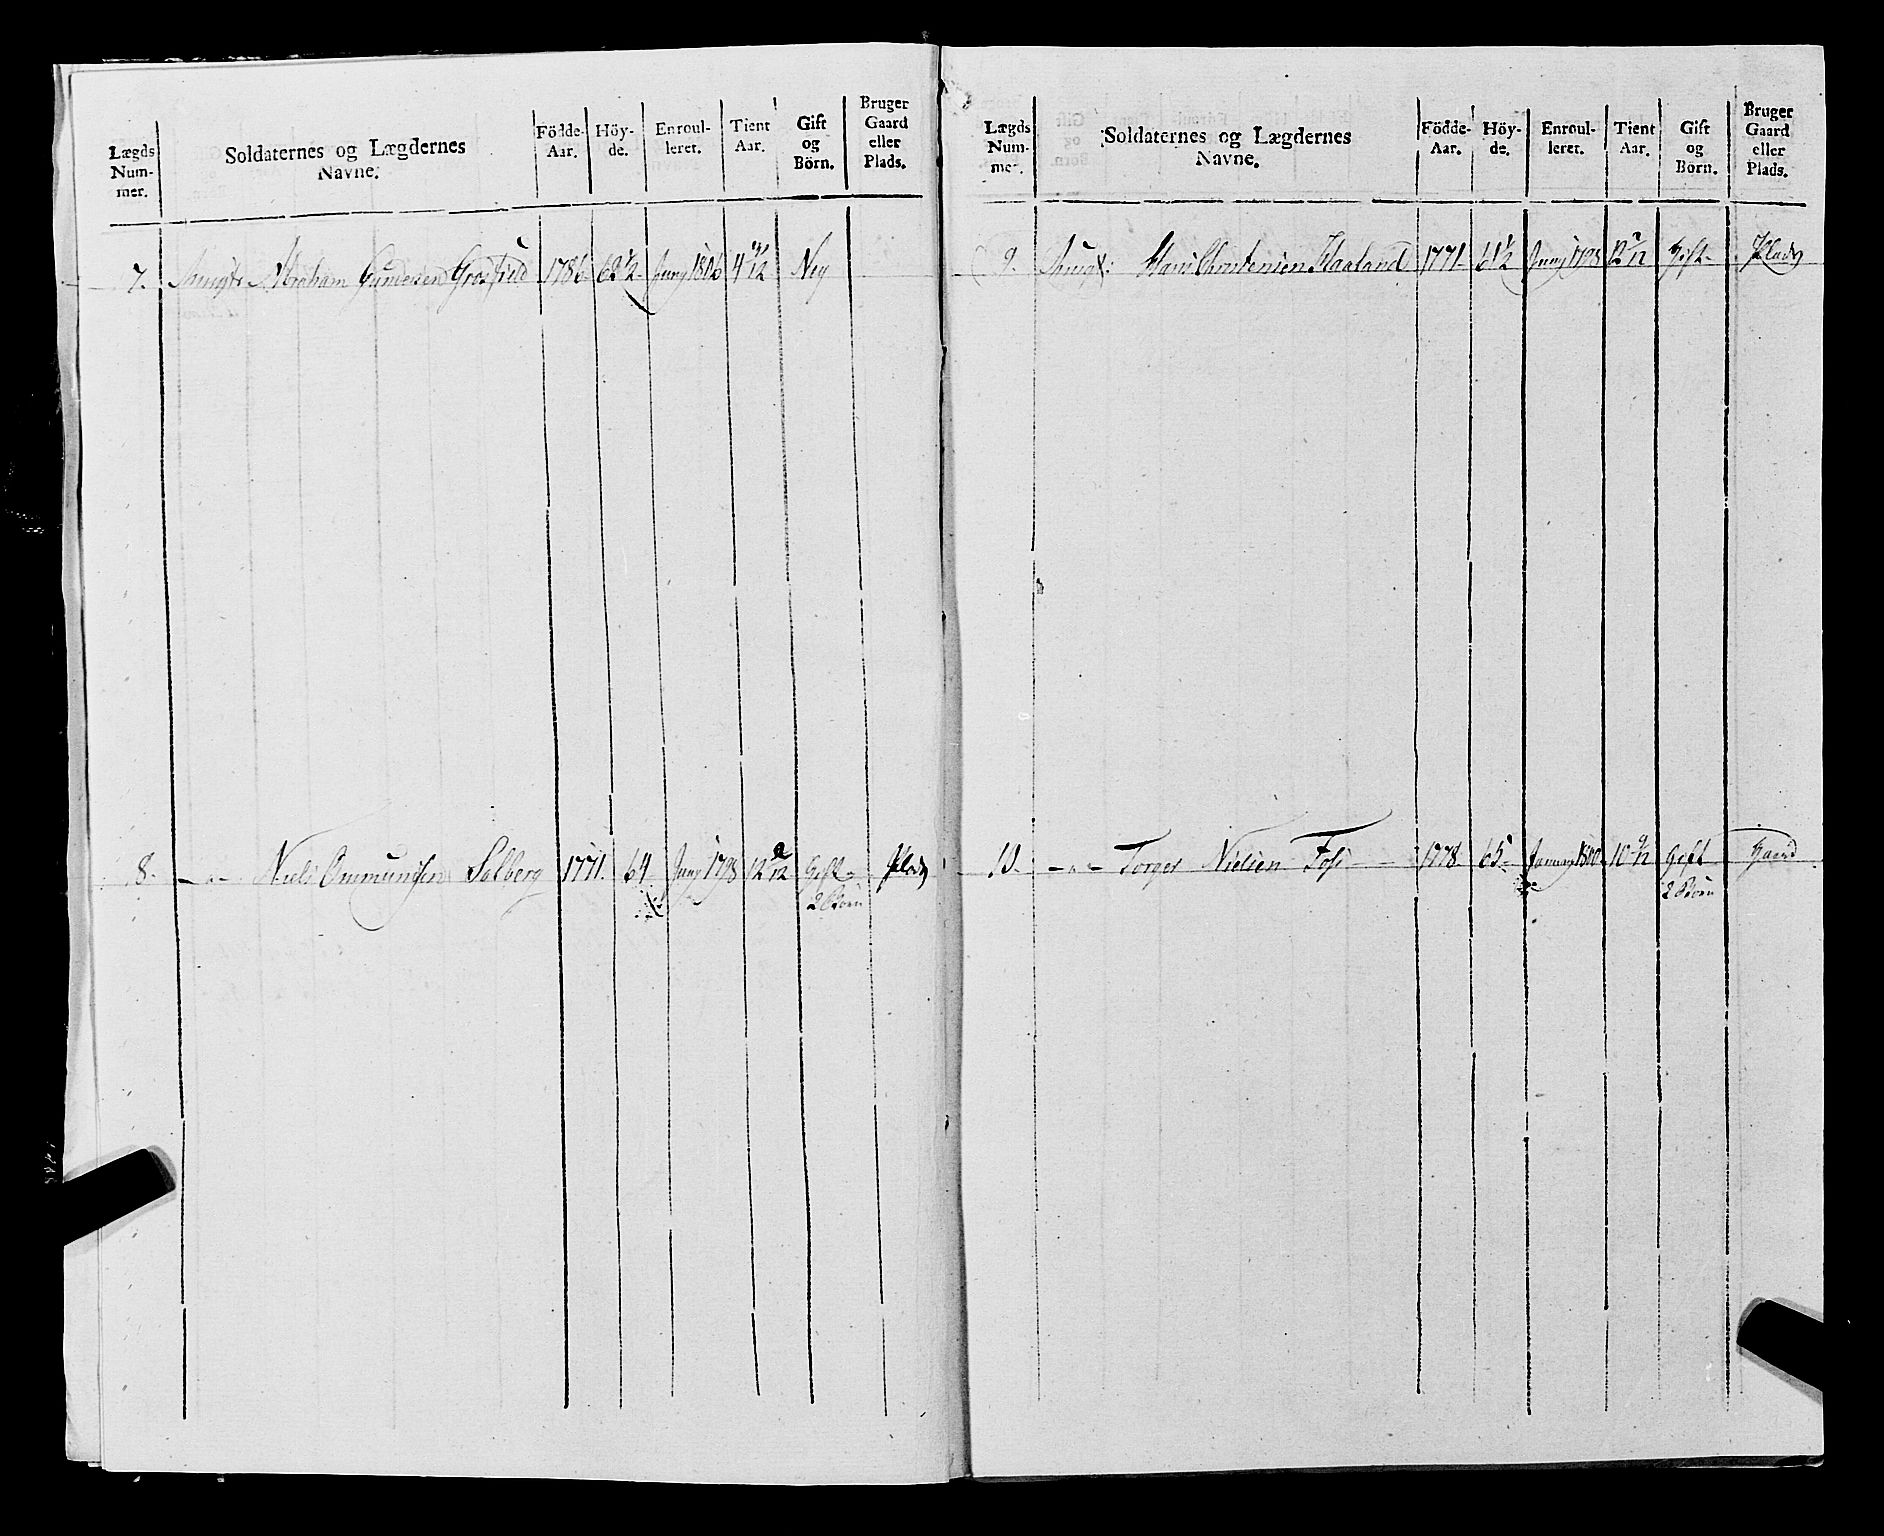 Lægds Num- mer.
Soldaternes og Lægdernes Navne.
Födde- Aar.
Höy- de.
Enroul- leret.
Tient Aar.
Gift og Börn.
Bruger Gaard eller Plads.
7. Abraham Gundersen 1786 62 1/2 Juny 1806 Ney
8. - " - Niels Ommundsen Solberg 1771. 64 Juny 1798 12 2/12 Gift Plads
2 Börn
Lægds Num- mer.
Soldaternes og Lægdernes Navne.
Födde- Aar.
Höy- de.
Enroul- leret.
Tient Aar.
Gift og Börn.
Bruger Gaard eller Plads.
9. Hans Christensen Haaland 1771. 61 1/2 Juny 1798 Gift Plads
10. - " - Torger Nielsen Foss 1778 65 Januar 1800 10 9/12 Gift Gaard
2 Börn